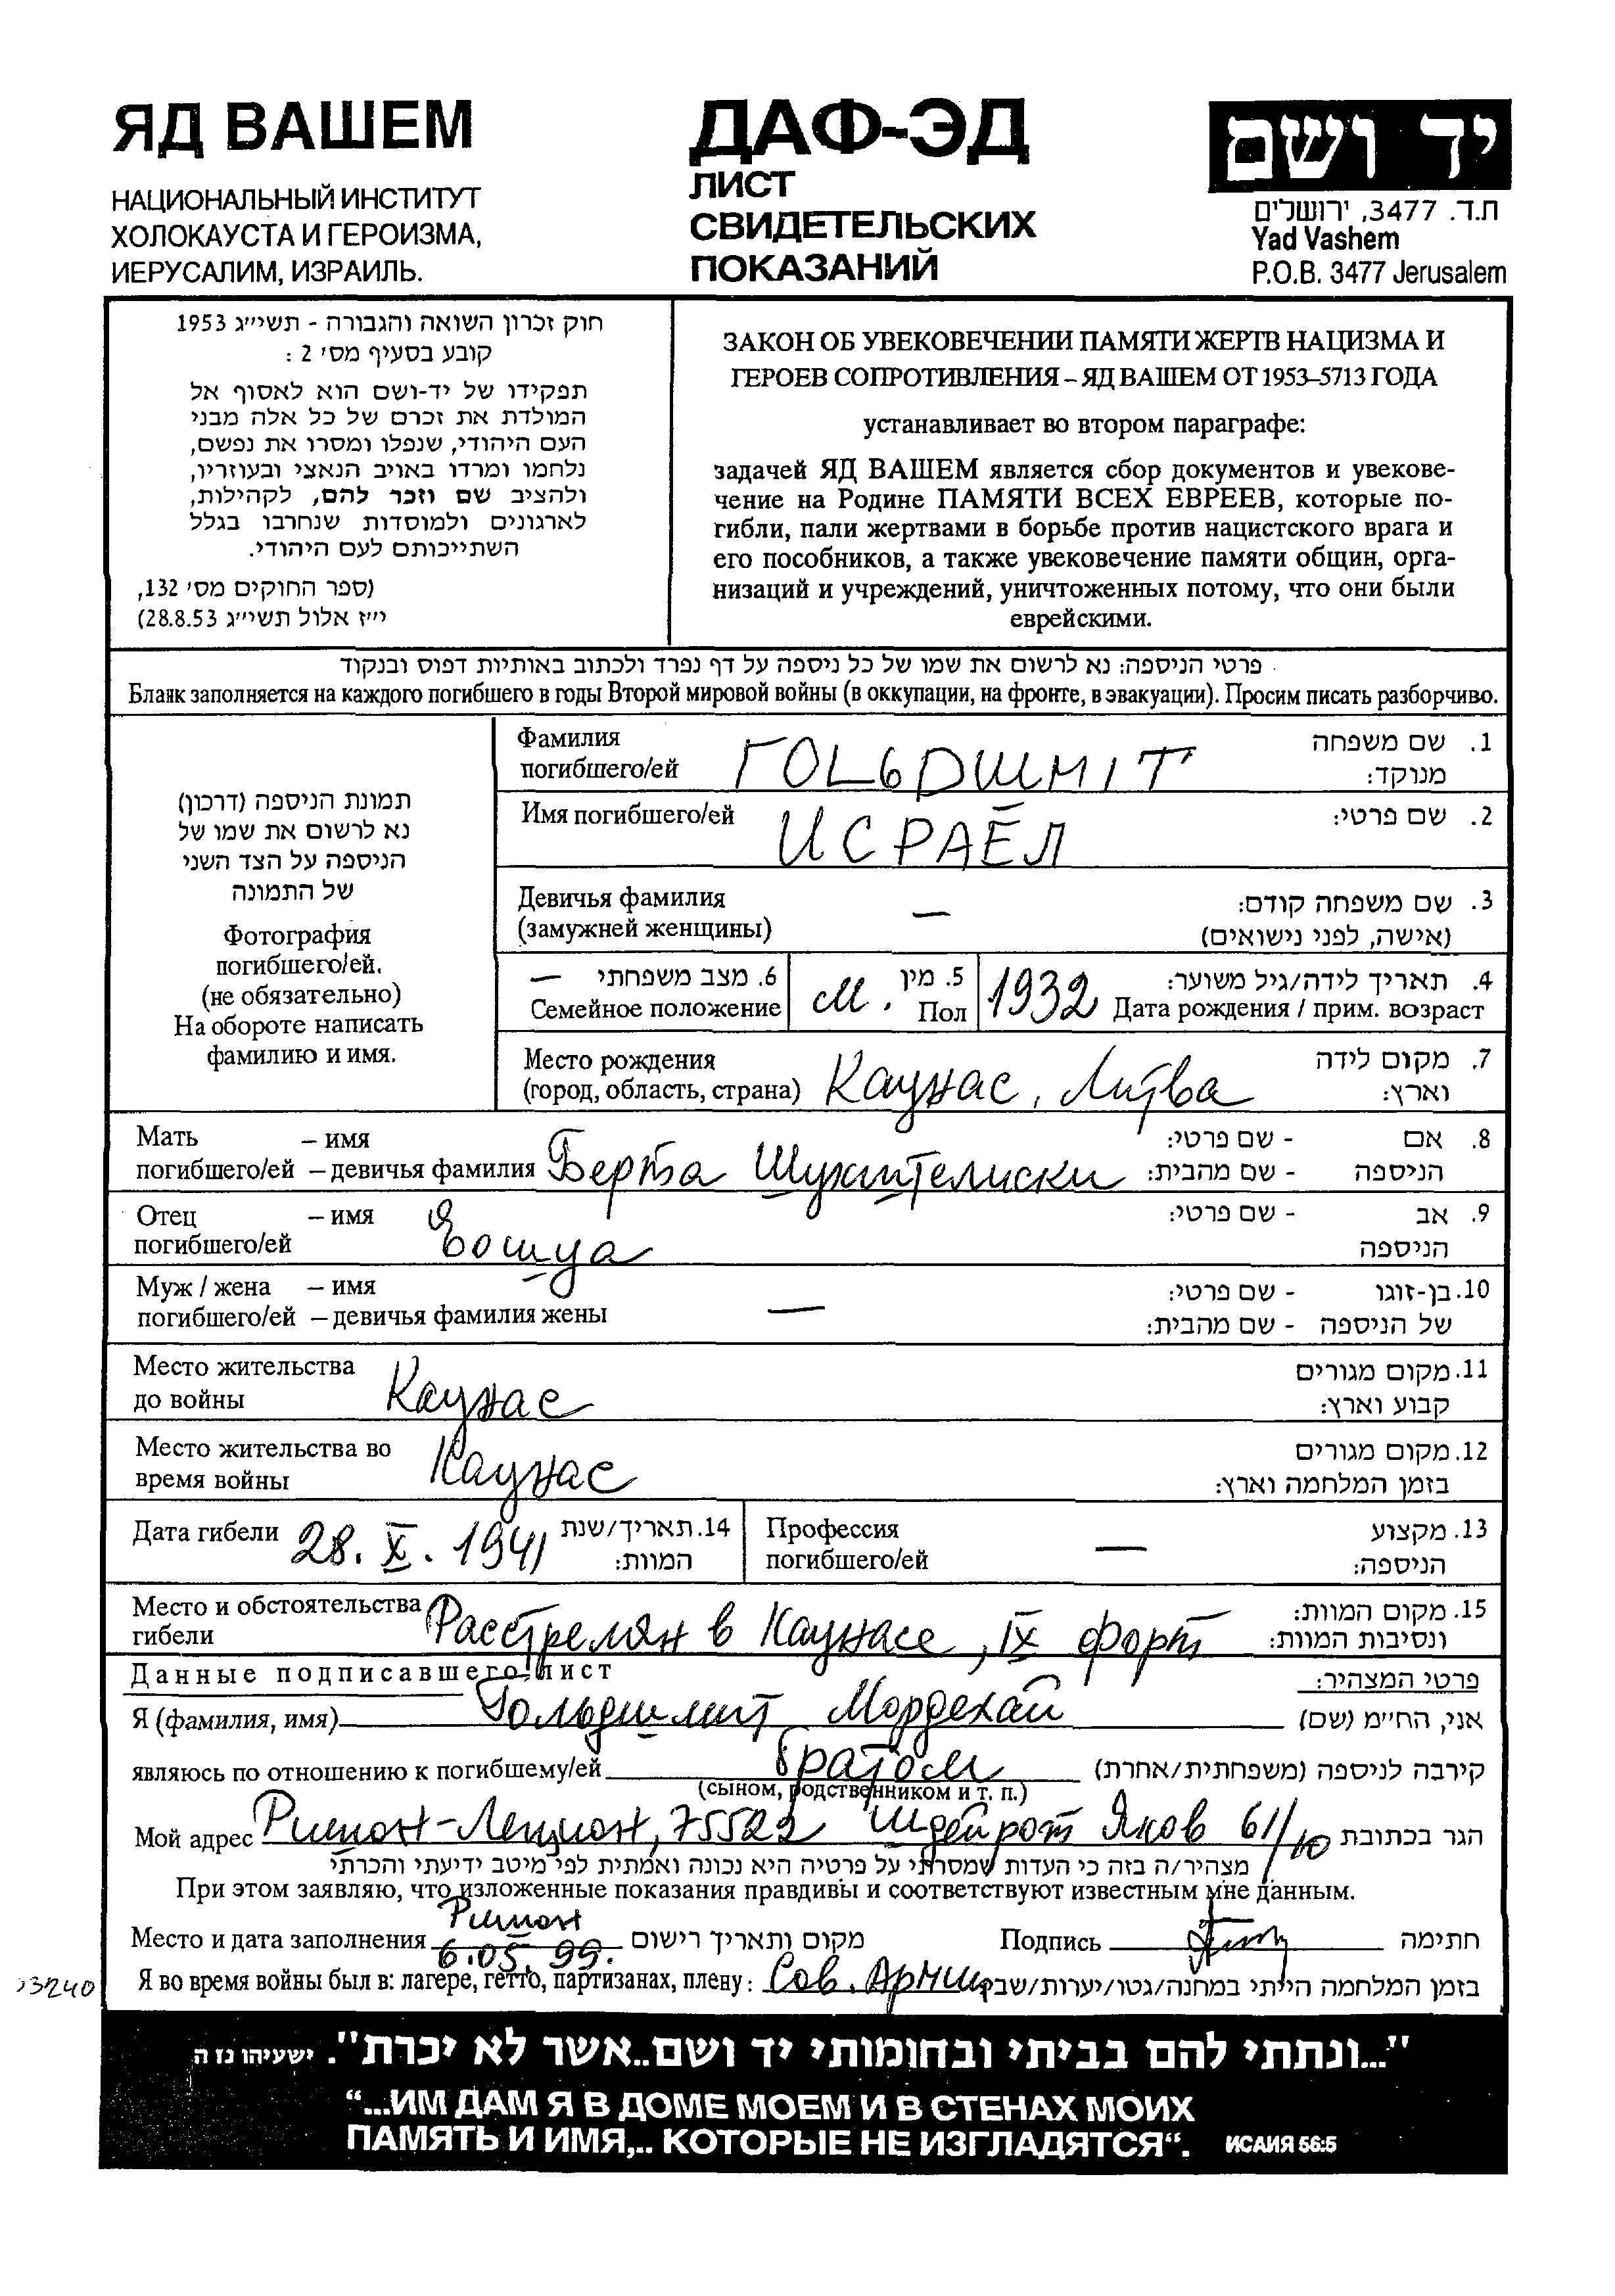 ЯД ВАШЕМ
НАЦИОНАЛЬНЫЙ ИНСТИТУТ
ХОЛОКАУСТА И ГЕРОИЗМА,
ИЕРУСАЛИМ, ИЗРАИЛЬ.
ДАФ-ЭД
ЛИСТ
СВИДЕТЕЛЬСКИХ
ПОКАЗАНИЙ
יד ושם
ת.ד. 3477, ירושלים
Yad Vashem
P.O.B. 3477 Jerusalem
חוק זכרון השואה והגבורה - תשי״ג 1953
קובע בסעיף מס׳ 2 :
תפקידו של יד-ושם הוא לאסוף אל
המולדת את זכרם של כל אלה מבני
העם היהודי, שנפלו ומסרו את נפשם,
נלחמו ומרדו באויב הנאצי ובעוזריו,
ולהציב שם וזכר להם, לקהילות,
לארגונים ולמוסדות שנחרבו בגלל
השתייכותם לעם היהודי.
(ספר החוקים מס׳ 132,
י״ז אלול תשי״ג 28.8.53)
ЗАКОН ОБ УВЕКОВЕЧЕНИИ ПАМЯТИ ЖЕРТВ НАЦИЗМА И
ГЕРОЕВ СОПРОТИВЛЕНИЯ – ЯД ВАШЕМ ОТ 1953–5713 ГОДА
устанавливает во втором параграфе:
задачей ЯД ВАШЕМ является сбор документов и увекове-
чение на Родине ПАМЯТИ ВСЕХ ЕВРЕЕВ, которые по-
гибли, пали жертвами в борьбе против нацистского врага и
его пособников, а также увековечение памяти общин, орга-
низаций и учреждений, уничтоженных потому, что они были
еврейскими.
פרטי הניספה: נא לרשום את שמו של כל ניספה על דף נפרד ולכתוב באותיות דפוס ובנקוד
Бланк заполняется на каждого погибшего в годы Второй мировой войны (в оккупации, на фронте, в эвакуации). Просим писать разборчиво.
תמונת הניספה (דרכון)
נא לרשום את שמו של
הניספה על הצד השני
של התמונה
Фотография
погибшего/ей.
(не обязательно)
На обороте написать
фамилию и имя.
Фамилия 1. שם משפחה
погибшего/ей ГОЛЬДШМИТ מנוקד:
Имя погибшего/ей ИСРАЕЛ 2. שם פרטי:
Девичья фамилия — 3. שם משפחה קודם:
(замужней женщины) (אישה, לפני נישואים)
— 6. מצב משפחתי
Семейное положение
м. 5. מין
Пол
1932 4. תאריך לידה/גיל משוער:
Дата рождения / прим. возраст
Место рождения 7. מקום לידה
(город, область, страна) Каунас, Литва וארץ:
Мать – имя - שם פרטי: 8. אם
погибшего/ей – девичья фамилия Берта Шухителиски - שם מהבית: הניספה
Отец – имя - שם פרטי: 9. אב
погибшего/ей Ешуа הניספה
Муж / жена – имя - שם פרטי: 10. בן-זוגו
погибшего/ей – девичья фамилия жены — - שם מהבית: של הניספה
Место жительства 11. מקום מגורים
до войны Каунас קבוע וארץ:
Место жительства во 12. מקום מגורים
время войны Каунас בזמן המלחמה וארץ:
Дата гибели 28. X. 1941 14. תאריך/שנת
המוות:
Профессия — 13. מקצוע
погибшего/ей הניספה:
Место и обстоятельства 15. מקום המוות:
гибели Расстрелян в Каунасе, IX форт ונסיבות המוות:
Данные подписавшего лист פרטי המצהיר:
Я (фамилия, имя) Гольдшмит Мордехай אני, החי״מ (שם)
являюсь по отношению к погибшему/ей братом קירבה לניספה (משפחתית/אחרת)
(сыном, родственником и т. п.)
Мой адрес Ришон-Лецион, 75522 Шдейрот Яков 61/10 הגר בכתובת
מצהיר/ה בזה כי העדות שמסרתי על פרטיה היא נכונה ואמתית לפי מיטב ידיעתי והכרתי
При этом заявляю, что изложенные показания правдивы и соответствуют известным мне данным.
Ришон
Место и дата заполнения 6.05.99. מקום ותאריך רישום Подпись חתימה
Я во время войны был в: лагере, гетто, партизанах, плену: Сов. Армии בזמן המלחמה הייתי במחנה/גטו/יערות/שבי
"...ונתתי להם בביתי ובחומותי יד ושם..אשר לא יכרת". ישעיהו נז ה
“...ИМ ДАМ Я В ДОМЕ МОЕМ И В СТЕНАХ МОИХ
ПАМЯТЬ И ИМЯ,.. КОТОРЫЕ НЕ ИЗГЛАДЯТСЯ“. ИСАИЯ 56:5